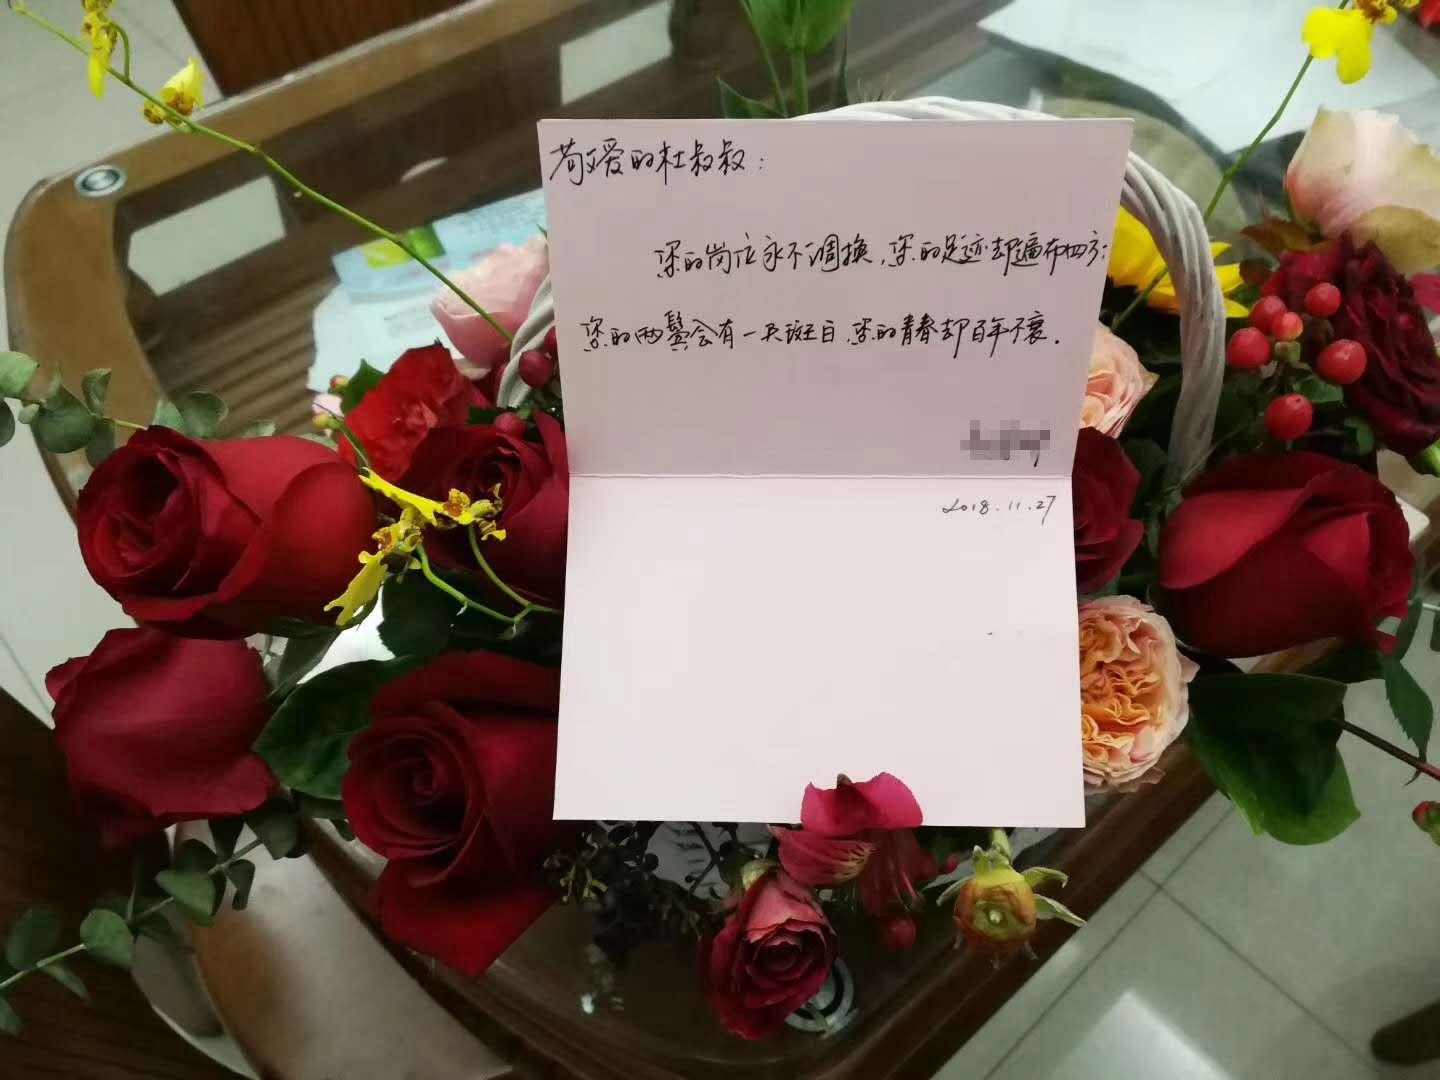 敬爱的杜叔叔：
您的岗位永不调换，您的足迹却遍布四方；
您的两鬓会有一天斑白，您的青春却百年不衰．
2018.11.27